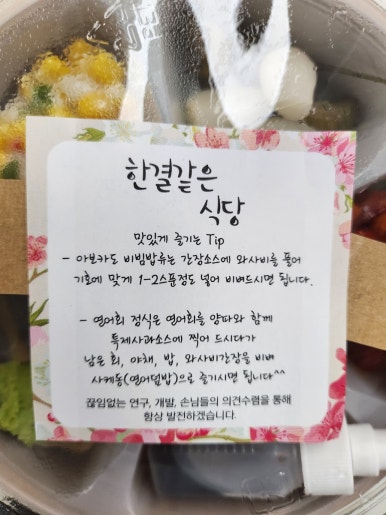 한결같은
식당
맛있게 즐기는 Tip
- 아보카도 비빔밥류는 간장소스에 와사비를 풀어
기호에 맞게 1-2스푼정도 넣어 비벼드시면 됩니다.
- 연어회 정식은 연어회를 양파와 함께
특제사라소스에 찍어 드시다가
남은 회, 야채, 밥, 와사비간장을 비벼
사케동(연어덮밥)으로 즐기시면 됩니다^^
끊임없는 연구, 개발, 손님들의 의견수렴을 통해
항상 발전하겠습니다.